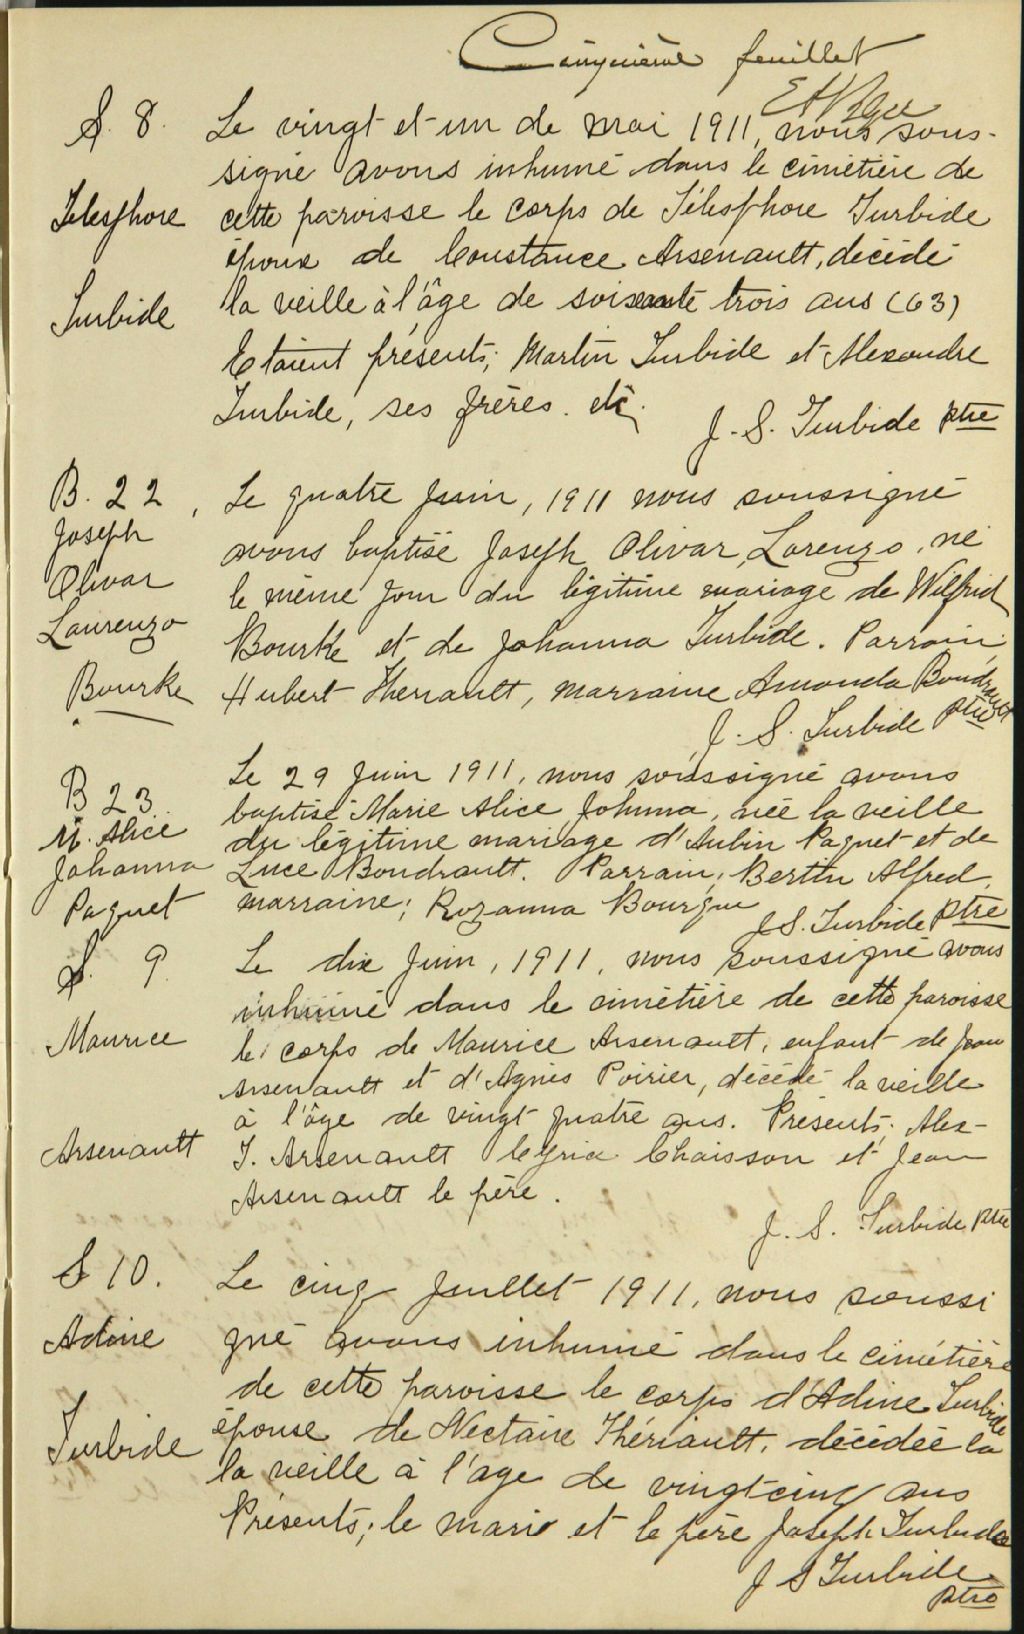 Cinquième feuillet
S. 8.
Telesphore
Turbide
Le vingt et un de mai 1911, nous sous-
signé avons inhumé dans le cimétière de
cette paroisse le corps de Télesphore Turbide
époux de Constance Arsenault, décédé
la veille à l'âge de soixante trois ans (63)
Etaient présents; Martin Turbide et Alexandre
Turbide, ses frères. etc.
J. S. Turbide ptre
B. 22,
Joseph
Olivar
Laurenzo
Bourke
Le quatre Juin, 1911 nous soussigné
avons baptisé Joseph Olivar Lorenzo, né
le même jour du légitime mariage de Wilfrid
Bourke et de Johanna Turbide. Parrain;
Hubert Theriault, marraine Amanda Boudrault
J. S. Turbide ptre
B 23.
M. Alice
Johanna
Paquet
Le 29 Juin 1911, nous soussigné avons
baptisé Marie Alice Johnna, née la veille
du légitime mariage d'Aubin Paquet et de
Luce Boudrault. Parrain; Bertin Alfred,
marraine; Rozanna Bourque
J S. Turbide ptre
S. 9
Maurice
Arsenault
Le dix Juin, 1911, nous soussigné avons
inhumé dans le cimétière de cette paroisse
le corps de Maurice Arsenault, enfant de Jean
Arsenault et d'Agnès Poirier, décédé la veille
à l'âge de vingt quatre ans. Présents; Alex-
J. Arsenault Cyriac Chaisson et Jean
Arsenault le père.
J. S. Turbide ptre
S 10.
Adine
Turbide
Le cinq Juillet 1911, nous soussi
gné avons inhumé dans le cimétière
de cette paroisse le corps d'Adine Turbide
épouse de Nectaire Thériault, décédée la
la veille à l'age de vingt cinq ans
Présents; le mari et le père Joseph Turbide
J S Turbide
ptre